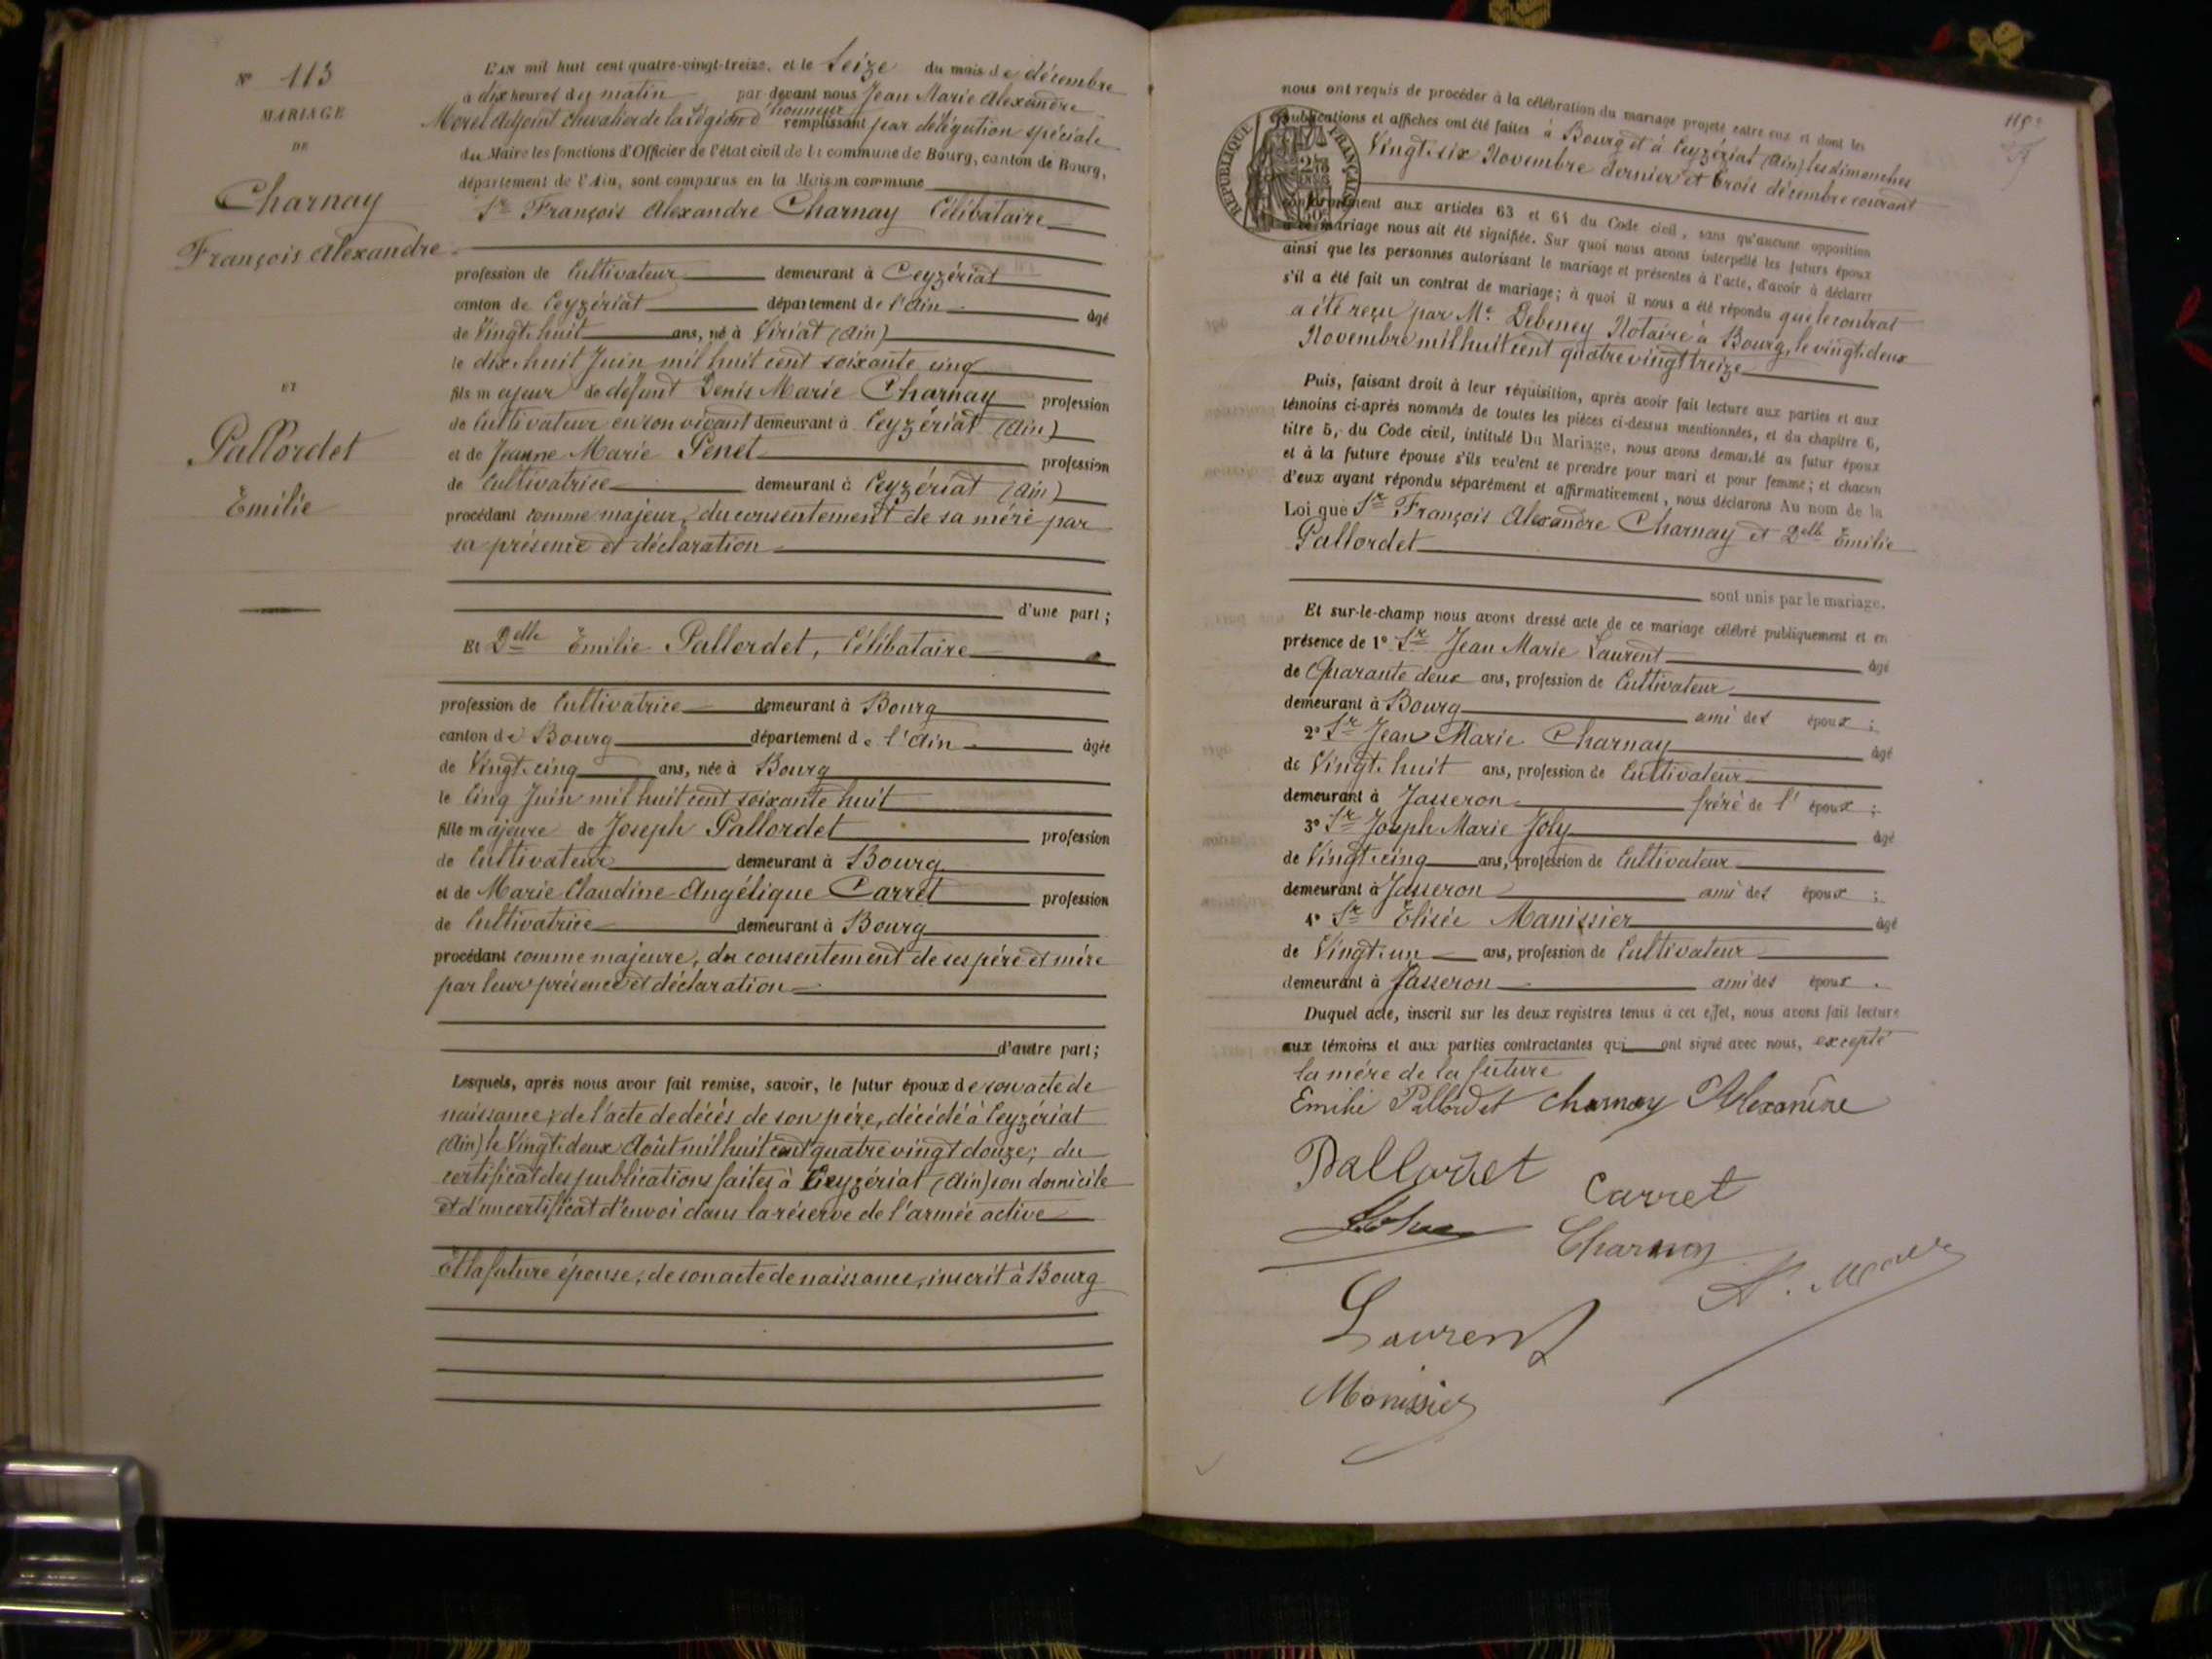 N° 113
MARIAGE
DE
Charnay
François Alexandre
ET
Pallordet
Emilie
L'AN mil huit cent quatre-vingt-treize, et le Seize du mois de décembre
à dix heures du matin par-devant nous Jean Marie Alexandre
Morel Adjoint Chevalier de la Légion d'honneur remplissant par délégation spéciale
du Maire les fonctions d'Officier de l'état civil de la commune de Bourg, canton de Bourg,
département de l'Ain, sont comparus en la Maison commune
Sr François Alexandre Charnay Célibataire
profession de Cultivateur demeurant à Ceyzériat
canton de Ceyzériat département de l'Ain âgé
de Vingt-huit ans, né à Viriat (Ain)
le dix-huit Juin mil huit cent soixante cinq
fils majeur de défunt Denis Marie Charnay profession
de Cultivateur en son vivant demeurant à Ceyzériat (Ain)
et de Jeanne Marie Penet profession
de Cultivatrice demeurant à Ceyzériat (Ain)
procédant comme majeur, du consentement de sa mère par
sa présence et déclaration
d'une part;
Et Delle Emilie Pallordet, Célibataire
profession de Cultivatrice demeurant à Bourg
canton de Bourg département de l'Ain âgée
de Vingt-cinq ans, née à Bourg
le Cinq Juin mil huit cent soixante huit
fille majeure de Joseph Pallordet profession
de Cultivateur demeurant à Bourg
et de Marie Claudine Angélique Carret profession
de Cultivatrice demeurant à Bourg
procédant comme majeure, du consentement de ses père et mère
par leur présence et déclaration
d'autre part;
Lesquels, après nous avoir fait remise, savoir, le futur époux de son acte de
naissance, de l'acte de décès de son père, décédé à Ceyzériat
(Ain) le Vingt-deux Août mil huit cent quatre vingt douze; du
certificat des publications faites à Ceyzériat (Ain) son domicile
et d'un certificat d'envoi dans la réserve de l'armée active
Et la future épouse, de son acte de naissance, inscrit à Bourg
nous ont requis de procéder à la célébration du mariage projeté entre eux et dont les
publications et affiches ont été faites à Bourg et à Ceyzériat (Ain) les dimanches
Vingt-six Novembre dernier et trois décembre courant
RÉPUBLIQUE FRANÇAISE
conformément aux articles 63 et 64 du Code civil, sans qu'aucune opposition
à ce mariage nous ait été signifiée. Sur quoi nous avons interpellé les futurs époux
ainsi que les personnes autorisant le mariage et présentes à l'acte, d'avoir à déclarer
s'il a été fait un contrat de mariage; à quoi il nous a été répondu que le contrat
a été reçu par Me Debeney Notaire à Bourg, le vingt-deux
Novembre mil huit cent quatre vingt treize
Puis, faisant droit à leur réquisition, après avoir fait lecture aux parties et aux
témoins ci-après nommés de toutes les pièces ci-dessus mentionnées, et du chapitre 6,
titre 5, du Code civil, intitulé Du Mariage, nous avons demandé au futur époux
et à la future épouse s'ils veulent se prendre pour mari et pour femme; et chacun
d'eux ayant répondu séparément et affirmativement, nous déclarons Au nom de la
Loi que Sr François Alexandre Charnay et Delle Emilie
Pallordet
sont unis par le mariage.
Et sur-le-champ nous avons dressé acte de ce mariage célébré publiquement et en
présence de 1° Sr Jean Marie Laurent âgé
de Quarante deux ans, profession de Cultivateur
demeurant à Bourg ami des époux;
2° Sr Jean Marie Charnay âgé
de Vingt-huit ans, profession de Cultivateur
demeurant à Jasseron frère de l'époux;
3° Sr Joseph Marie Joly âgé
de Vingt-cinq ans, profession de Cultivateur
demeurant à Jasseron ami des époux;
4° Sr Elisée Manissier âgé
de Vingt-un ans, profession de Cultivateur
demeurant à Jasseron ami des époux.
Duquel acte, inscrit sur les deux registres tenus à cet effet, nous avons fait lecture
aux témoins et aux parties contractantes qui ont signé avec nous, excepté
la mère de la future
Emilie Pallordet Charnay Alexandre
Pallordet
Carret
Charnay
Laurent
Manissier